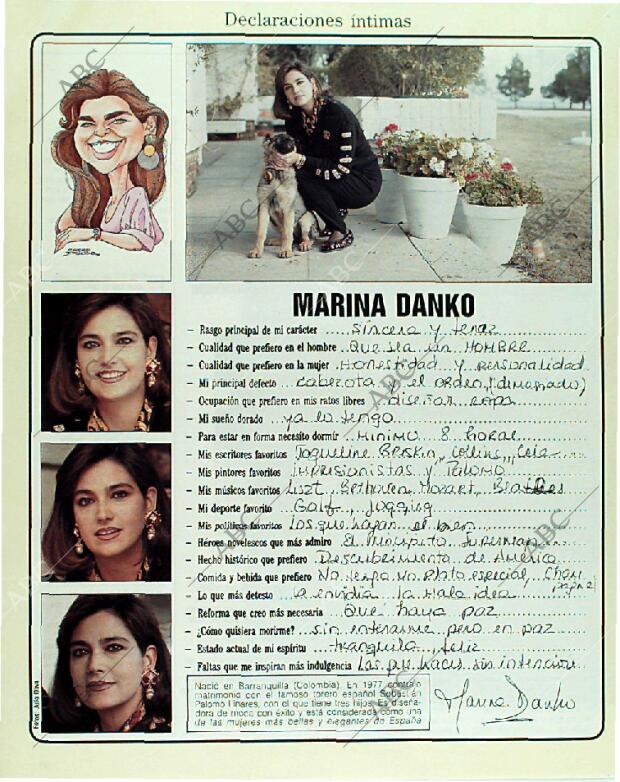 Declaraciones íntimas
MARINA DANKO
– Rasgo principal de mi carácter sincera y tenaz
– Cualidad que prefiero en el hombre Que sea un HOMBRE
– Cualidad que prefiero en la mujer Honestidad y personalidad
– Mi principal defecto cabezota y el orden, (dimasiado)
– Ocupación que prefiero en mis ratos libres diseñar ropa
– Mi sueño dorado ya lo tengo
– Para estar en forma necesito dormir MINIMO 8 horas
– Mis escritores favoritos Jaqueline Collins, Cela
– Mis pintores favoritos Impresionistas y PALOMO
– Mis músicos favoritos Liszt, Bethoven, Mozart, Beatles
– Mi deporte favorito Golf, jogging
– Mis políticos favoritos Los que hagan el bien
– Héroes novelescos que más admiro El Principito, Superman
– Hecho histórico que prefiero Descubrimiento de America
– Comida y bebida que prefiero No tengo un plato especial, Cham
– Lo que más detesto La envidia la mala idea
– Reforma que creo más necesaria Que haya paz
– ¿Cómo quisiera morirme? sin enterarme pero en paz
– Estado actual de mi espíritu tranquila, feliz
– Faltas que me inspiran más indulgencia Las que haces sin intención
Nació en Barranquilla (Colombia). En 1977 contrajo
matrimonio con el famoso torero español Sebastián
Palomo Linares, con el que tiene tres hijos. Es diseña-
dora de moda con éxito y está considerada como una
de las mujeres más bellas y elegantes de España
Marina Danko
ABC